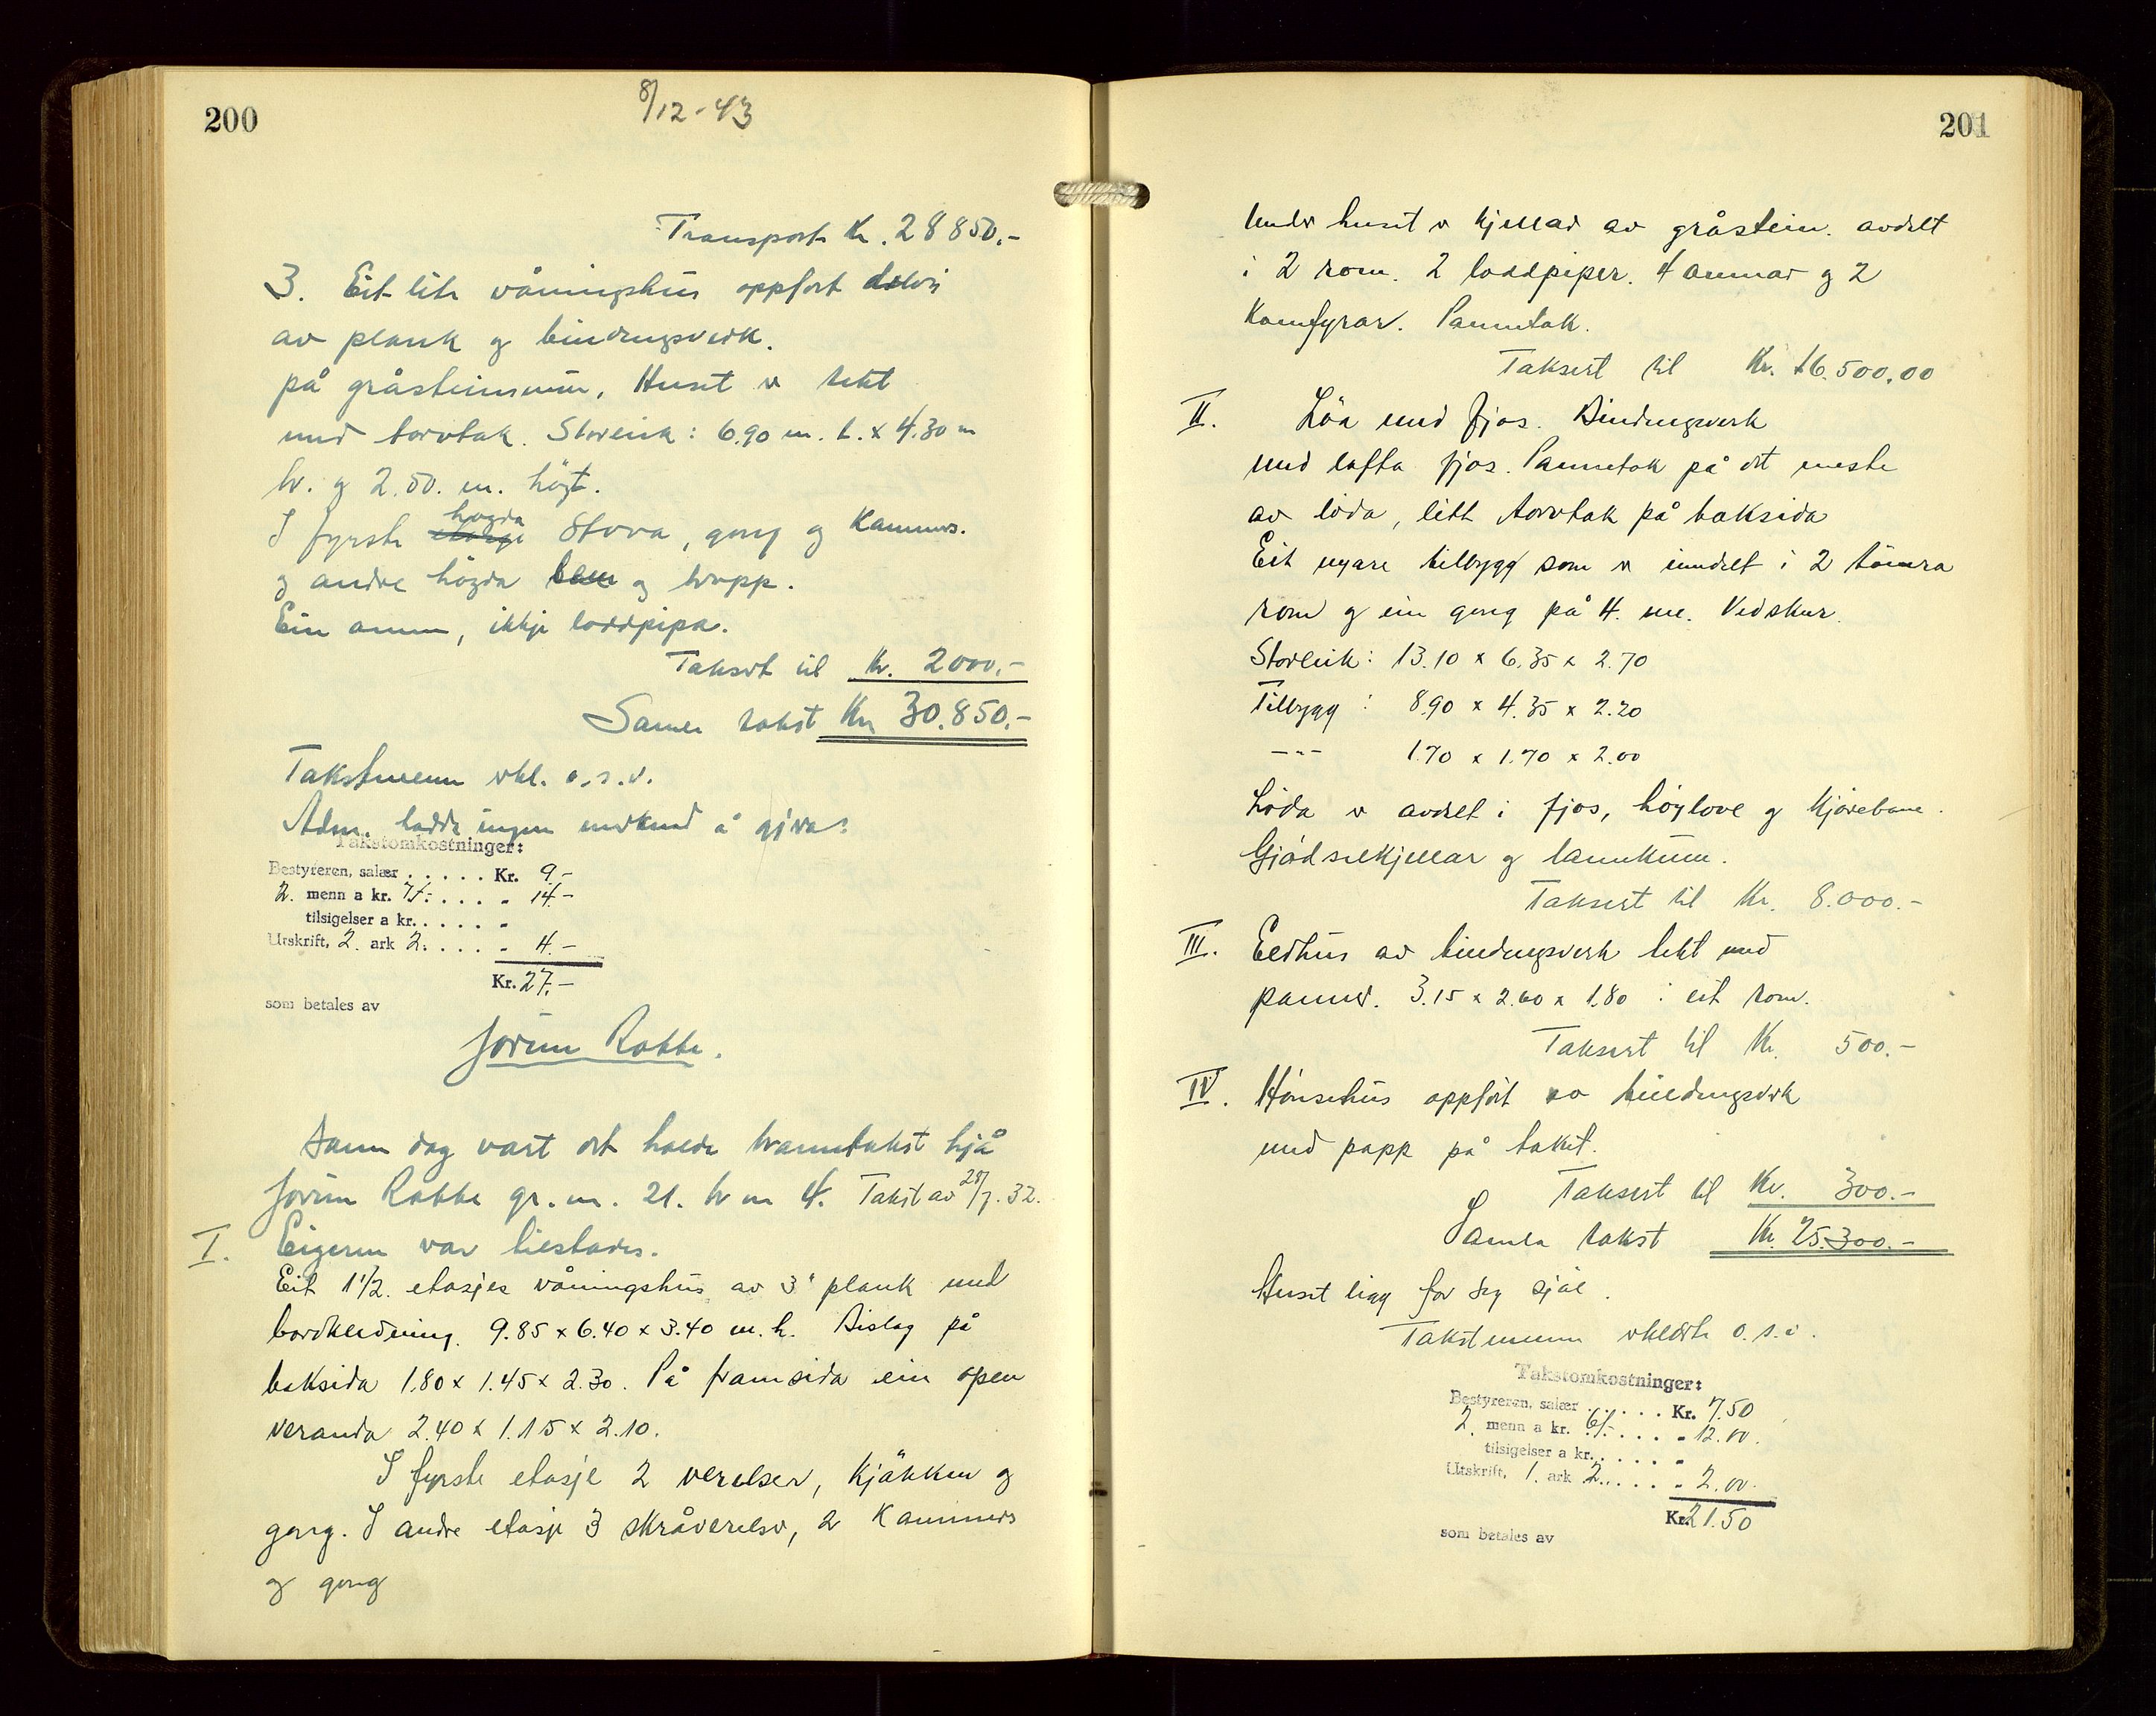 200
8/12-43
Transport Kr. 28850.-
3. Eit lite våningshus oppført delvis
av plank og bindingsverk.
på gråsteinsmur. Huset er tekt
med torvtak. Storleik: 6.90 m. l. x 4.30 m
br. og 2.50. m. högt.
I fyrste högda Stova, gong og Kammers.
og andre högda lem og trapp.
Ein omn, ikkje loddpipa.
Taksert til Kr. 2000.-
Samla takst Kr 30.850.-
Takstmenn erkl. o.s.v.
Adm. hadde ingen merknad å gjera:
Takstomkostninger:
Bestyreren, salær ..... Kr. 9.-
2. menn a kr. 7/-.... „ 14.-
tilsigelser a kr..... „
Utskrift, 2. ark 2:.... „ 4.-
Kr. 27.-
som betales av
Jorun Rabbe.
Same dag vart det halde branntakst hjå
Jorun Rabbe gr. m. 21. br m 4. Takst av 28/7. 32.
I. Eigeren var tilstades.
Eit 1 1/2. etasjes våningshus av 3" plank med
bordkledning. 9.85 x 6.40 x 3.40 m. h. Bislag på
baksida 1.80 x 1.45 x 2.30. På framsida ein open
veranda 2.40 x 1.15 x 2.10.
I fyrste etasje 2 verelser, kjökken og
gong. I andre etasje 3 skråverelser, 2 Kammers
og gong
201
Under huset er kjellar av gråstein. avdelt
i 2 rom. 2 loddpiper. 4 omnar og 2
Komfyrar. Pannetak.
Taksert til Kr. 16.500,00
II. Löa med fjos. Bindingsverk
med lafta fjos. Pannetak på det meste
av löda, litt torvtak på baksida
Eit nyare tilbygg som er inndelt i 2 tömra
rom og ein gong på 4. me. Vedskur.
Storleik: 13.10 x 6.35 x 2.70
Tilbygg: 8.90 x 4.35 x 2.20
-"- 1.70 x 1.70 x 2.00
Löda er avdelt i fjos, höylove og kjörebane.
Gjödselkjellar og lannkum.
Taksert til Kr. 8.000.-
III. Eldhus av bindingsverk tekt med
panner. 3.15 x 2.60 x 1.80 : eit rom.
Taksert til Kr. 500.-
IV. Hönsehus oppfört av bindingsverk
med papp på taket.
Taksert til Kr. 300.-
Samla takst Kr. 25.300.-
Huset ligg for seg sjøl.
Takstmenn erklærte o.s.v.
Takstomkostninger:
Bestyreren, salær ..... Kr. 7.50
2. menn a kr. 6/-.... „ 12.00.
tilsigelser a kr..... „
Utskrift, 1. ark 2..... „ 2.00.
Kr. 21.50
som betales av